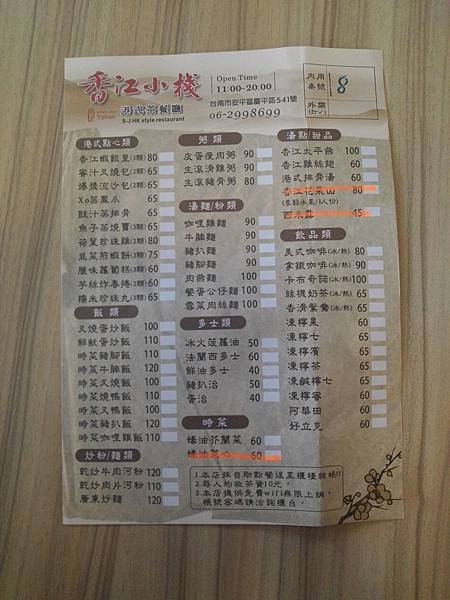 香江小棧
港式茶餐廳
S-J HK style restaurant
Open Time
11:00-20:00
台南市安平區慶平路541號
06-2998699
內用
桌號
8
外帶
(打✓)
港式點心類
香江蝦餃皇(3顆) 80
蜜汁叉燒包(2顆) 65
爆漿流沙包(2顆) 65
Xo蒸鳳爪 65
豉汁蒸排骨 65
魚子蒸燒賣(3顆) 65
荷葉珍珠雞(2顆) 80
韭菜煎蝦餅(3顆) 75
臘味蘿蔔糕(3顆) 60
芋絲炸春捲(2顆) 60
糯米珍珠丸(3顆) 65
飯類
叉燒蛋炒飯 100
鮮魷蛋炒飯 110
時菜豬腳飯 110
時菜牛腩飯 120
時菜叉燒飯 100
時菜叉鴨飯 100
時菜豬扒飯 120
時菜咖哩雞飯 110
炒粉/麵類
乾炒牛肉河粉 120
乾炒肉片河粉 110
廣東炒麵 120
粥類
皮蛋瘦肉粥 90
生滾滑雞粥 90
生滾豬骨粥 80
湯麵/粉類
咖哩雞麵 90
牛腩麵 90
豬扒麵 90
豬腳麵 90
肉燕麵 100
餐蛋公仔麵 100
雪菜肉絲麵 100
多士類
冰火菠蘿油 50
法蘭西多士 60
鮮油多士 40
豬扒治 50
蛋治 40
時菜
蠔油芥蘭菜 60
60
湯點/甜品
香江太平燕 100
香江雞絲翅 60
港式排骨湯 60
香江花果山 80
(季節水果/1人份)
西米露 45
飲品類
美式咖啡(冰/熱) 80
拿鐵咖啡(冰/熱) 90
卡布奇諾(冰/熱) 100
絲襪奶茶(冰/熱) 65
香滑鴛鴦(冰/熱) 65
凍檸果 60
凍檸七 60
凍檸賓 60
凍檸茶 60
凍鹹檸七 60
凍檸蜜 60
阿華田 60
好立克 60
1.本店採自助點餐後至櫃檯結帳!!
2.每人均收茶資10元。
3.本店提供免費wifi無限上網,
帳號密碼請洽詢櫃台。